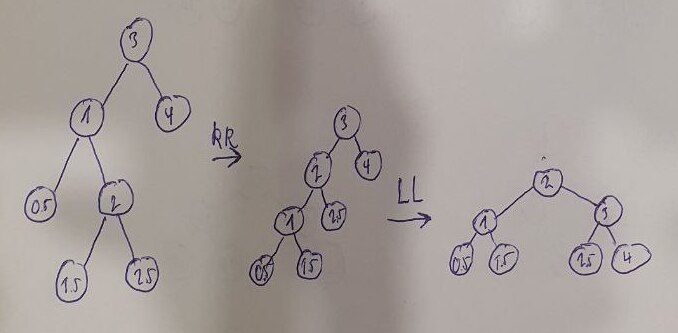 3
1
4
0.5
2
1.5
2.5
RR
3
2
4
1
2.5
0.5
1.5
LL
2
1
3
0.5
1.5
2.5
4